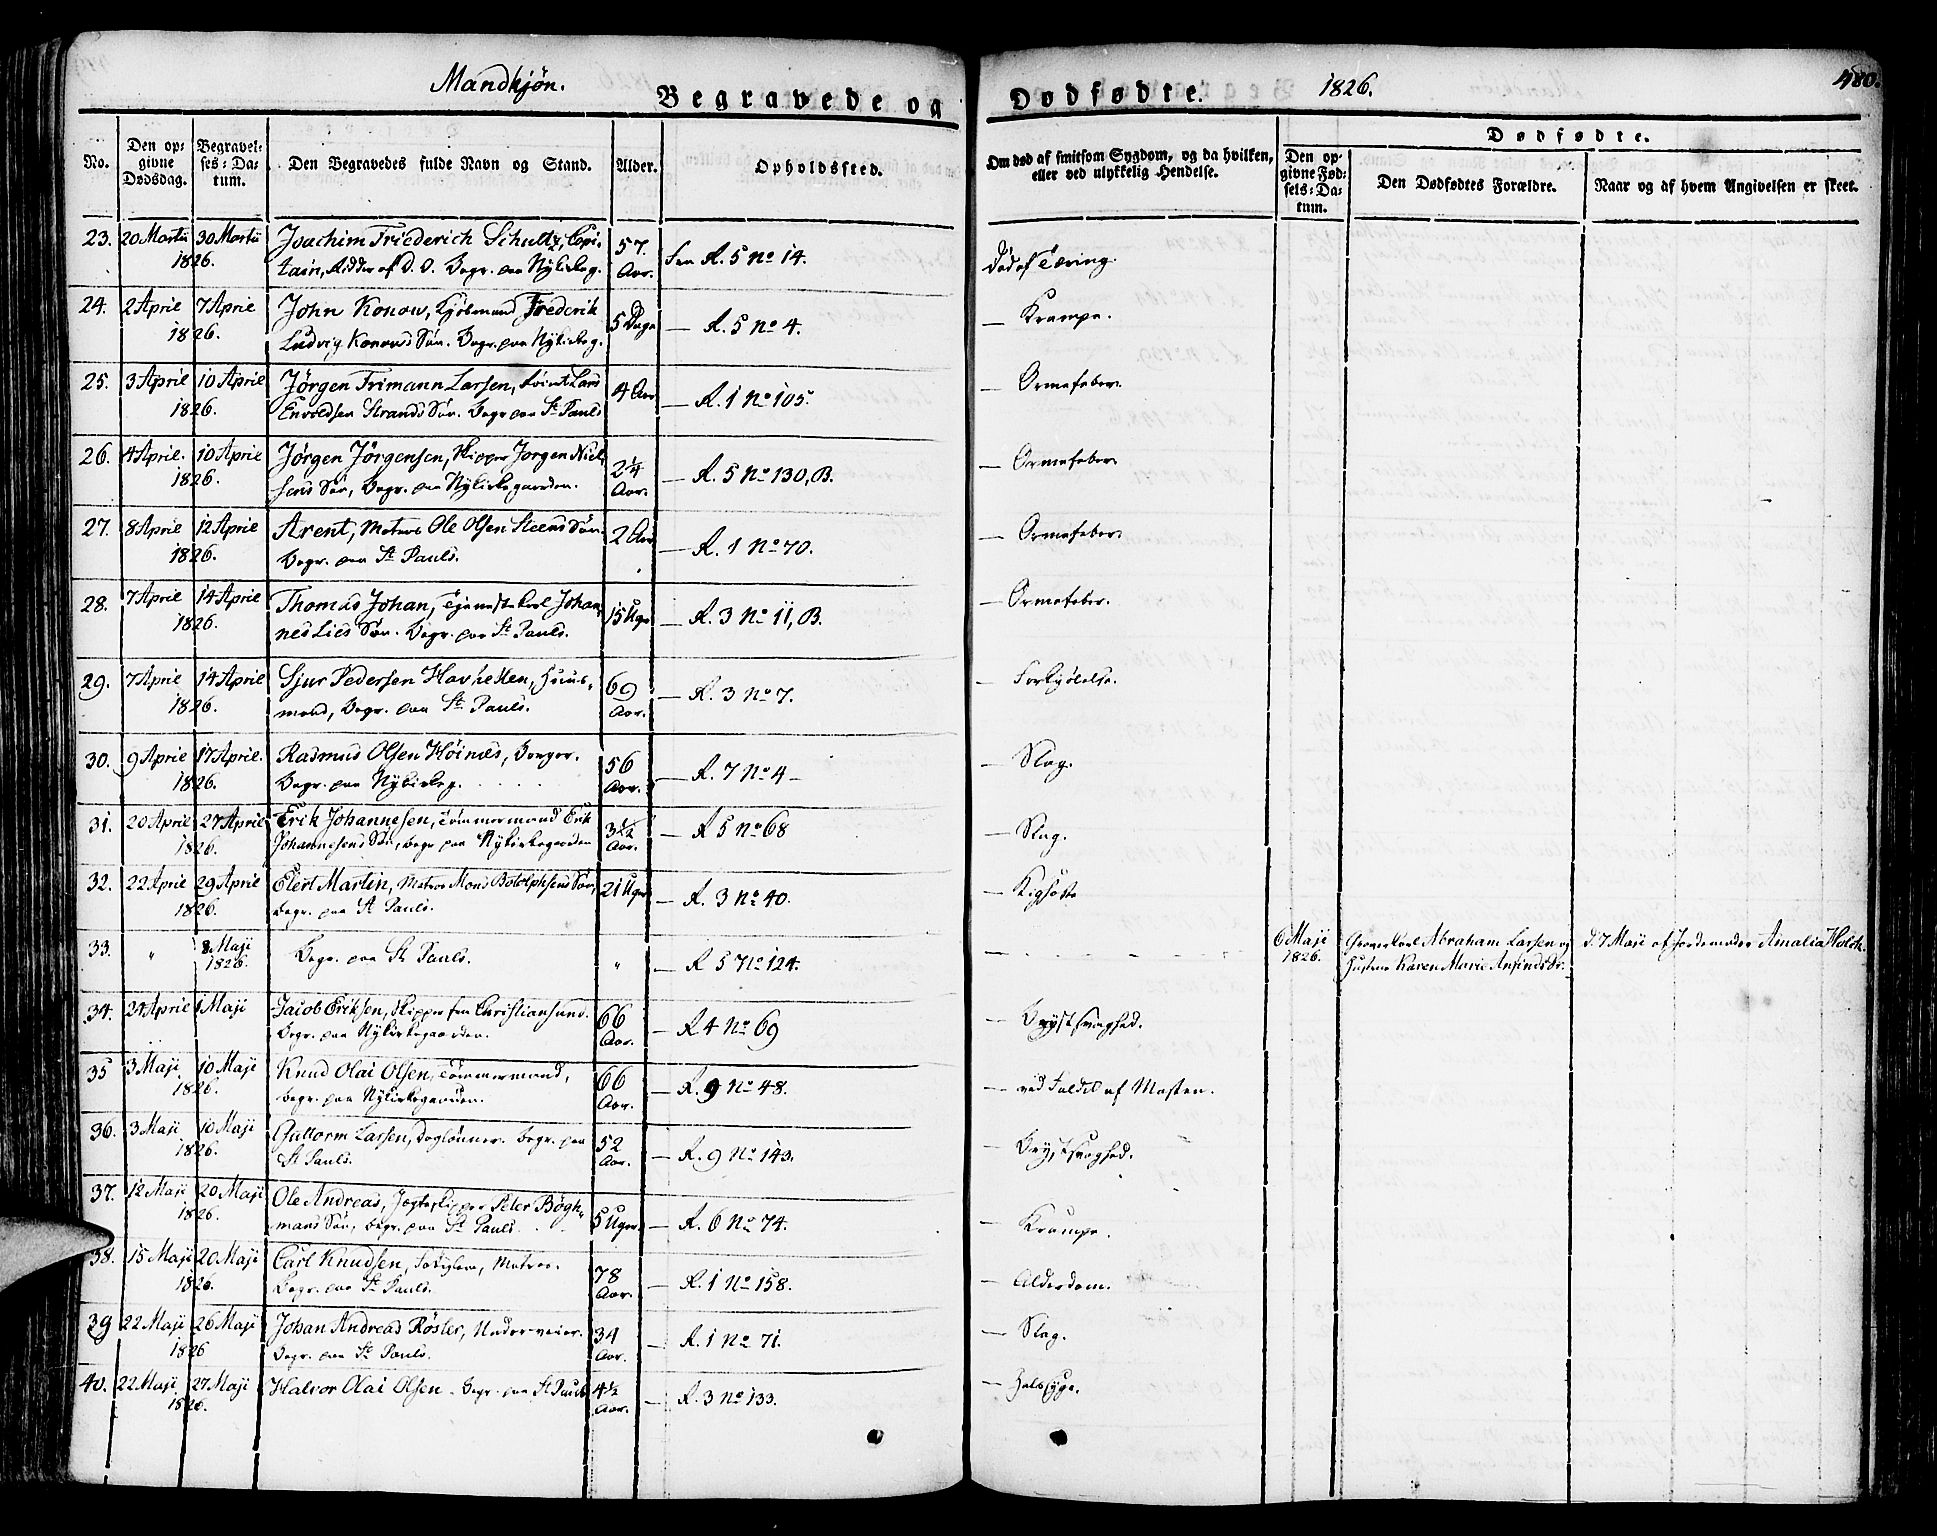 Mandkjøn.
Begravede og
Dødfødte.
1826.
480.
No.
Den op-
givne
Dødsdag.
Begravel-
ses-Da-
tum.
Den Begravedes fulde Navn og Stand.
Alder.
Opholdssted.
Om død af smitsom Sygdom, og da hvilken,
eller ved ulykkelig Hendelse.
Dødfødte.
Den op-
givne Fød-
sels-Da-
tum.
Den Dødfødtes Forældre.
Naar og af hvem Angivelsen er skeet.
23. 20 Martii 30 Martii Joachim Friederich Schultz, Capi- 57 fra R. 5 No 14. Død af Tæring.
1826. tain, Ridder af D. O. Begr. paa Nykirkeg. Aar.
24. 2 Aprie 7 Aprie John Konow, Kjøbmand Frederik 5 Dage — R. 5 No 4. — Krampe.
1826. Ludvig Konows Søn. Begr. paa Nykirkeg.
25. 3 Aprie 10 Aprie Jørgen Frimann Larsen, Lars 4 Aar — R. 1 No 105. — Ormefeber.
1826. Envoldsen Strands Søn. Begr. paa St Pauls
26. 4 Aprie. 10 Aprie Jørgen Jørgensen, Skipper Jørgen Niel- 2 1/4 — R. 5 No 130, B. — Ormefeber.
1826. sens Søn, Begr. paa Nykirkegaarden. Aar.
27. 8 Aprie 12 Aprie Arent, Matros Ole Olsen Steens Søn. 2 Aar — R. 1 No 70. — Ormefeber.
1826. Begr. paa St Pauls.
28. 7 Aprie 14 Aprie Thomas Johan, Tjenestekarl Johan- 15 Uger — R. 3 No 11, B. — Ormefeber.
1826. nes Lies Søn. Begr. paa St Pauls.
29. 7 Aprie 14 Aprie Sjur Pedersen Havhellen, Huus- 69 — R. 3 No 7. — Forkjølelse.
1826. mand, Begr. paa St Pauls. Aar.
30. 9 Aprie 17 Aprie. Rasmus Olsen Høinæs, Borger. 56 — R. 7 No 4 — — Slag.
1826. Begr. paa Nykirkeg. Aar.
31. 20 Aprie 27 Aprie Erik Johannesen, Tømmermand Erik 3 1/2 — R 5 No 68 — Slag.
1826. Johannesens Søn, begr. paa Nykirkegaarden Aar.
32. 22 Aprie 29 Aprie Elert Martin, Matros Mons Botolphsens Søn, 21 Uger — R. 3 No 40. — Kighoste
1826. Begr. paa St Pauls.
33. " 8 Maji Begr. paa St Pauls. " — R 5 No 124. — 6 Maji Abraham Larsen og d. 7 Maji af Jordemoder Amalia Holck.
1826. 1826. Hustrue Karen Marie Ansindsdr.
34. 24 Aprie 1 Maji Jacob Eriksen, Skipper fra Christiansund. 66 — R 4 No 69 — Brystsvaghed.
Begr. paa Nykirkegaarden. Aar.
35 3 Maji 10 Maji Knud Olai Olsen, Tømmermand, 66 — R. 9 No 48. — ved Faldet af Masten.
1826. begr. paa Nykirkegaarden. Aar.
36. 3 Maji 10 Maji Guttorm Larsen, Daglønner. begr. paa 52 — R. 9 No 143. — Brystsvaghed.
1826. St Pauls. Aar.
37. 12 Maji 20 Maji Ole Andreas, Jægteskipper Peter Bøgh- 5 Uger — R. 6 No 74. — Krampe.
1826. mans Søn, begr. paa St Pauls.
38. 15 Maji 20 Maji Carl Knudsen, Matros. 78 — R. 1 No 158. — Alderdom.
1826. Begr. paa St Pauls. Aar.
39 22 Maji 26 Maji Johan Andreas Røsler, Underveier. 34 — R. 1 No 71. — Slag.
1826 Begr. paa St Pauls. Aar.
40. 22 Maji 27 Maji Halvor Olai Olsen. Begr. paa St Pauls 4 1/2 — R. 3 No 133. — Halssyge.
1826. Aar.